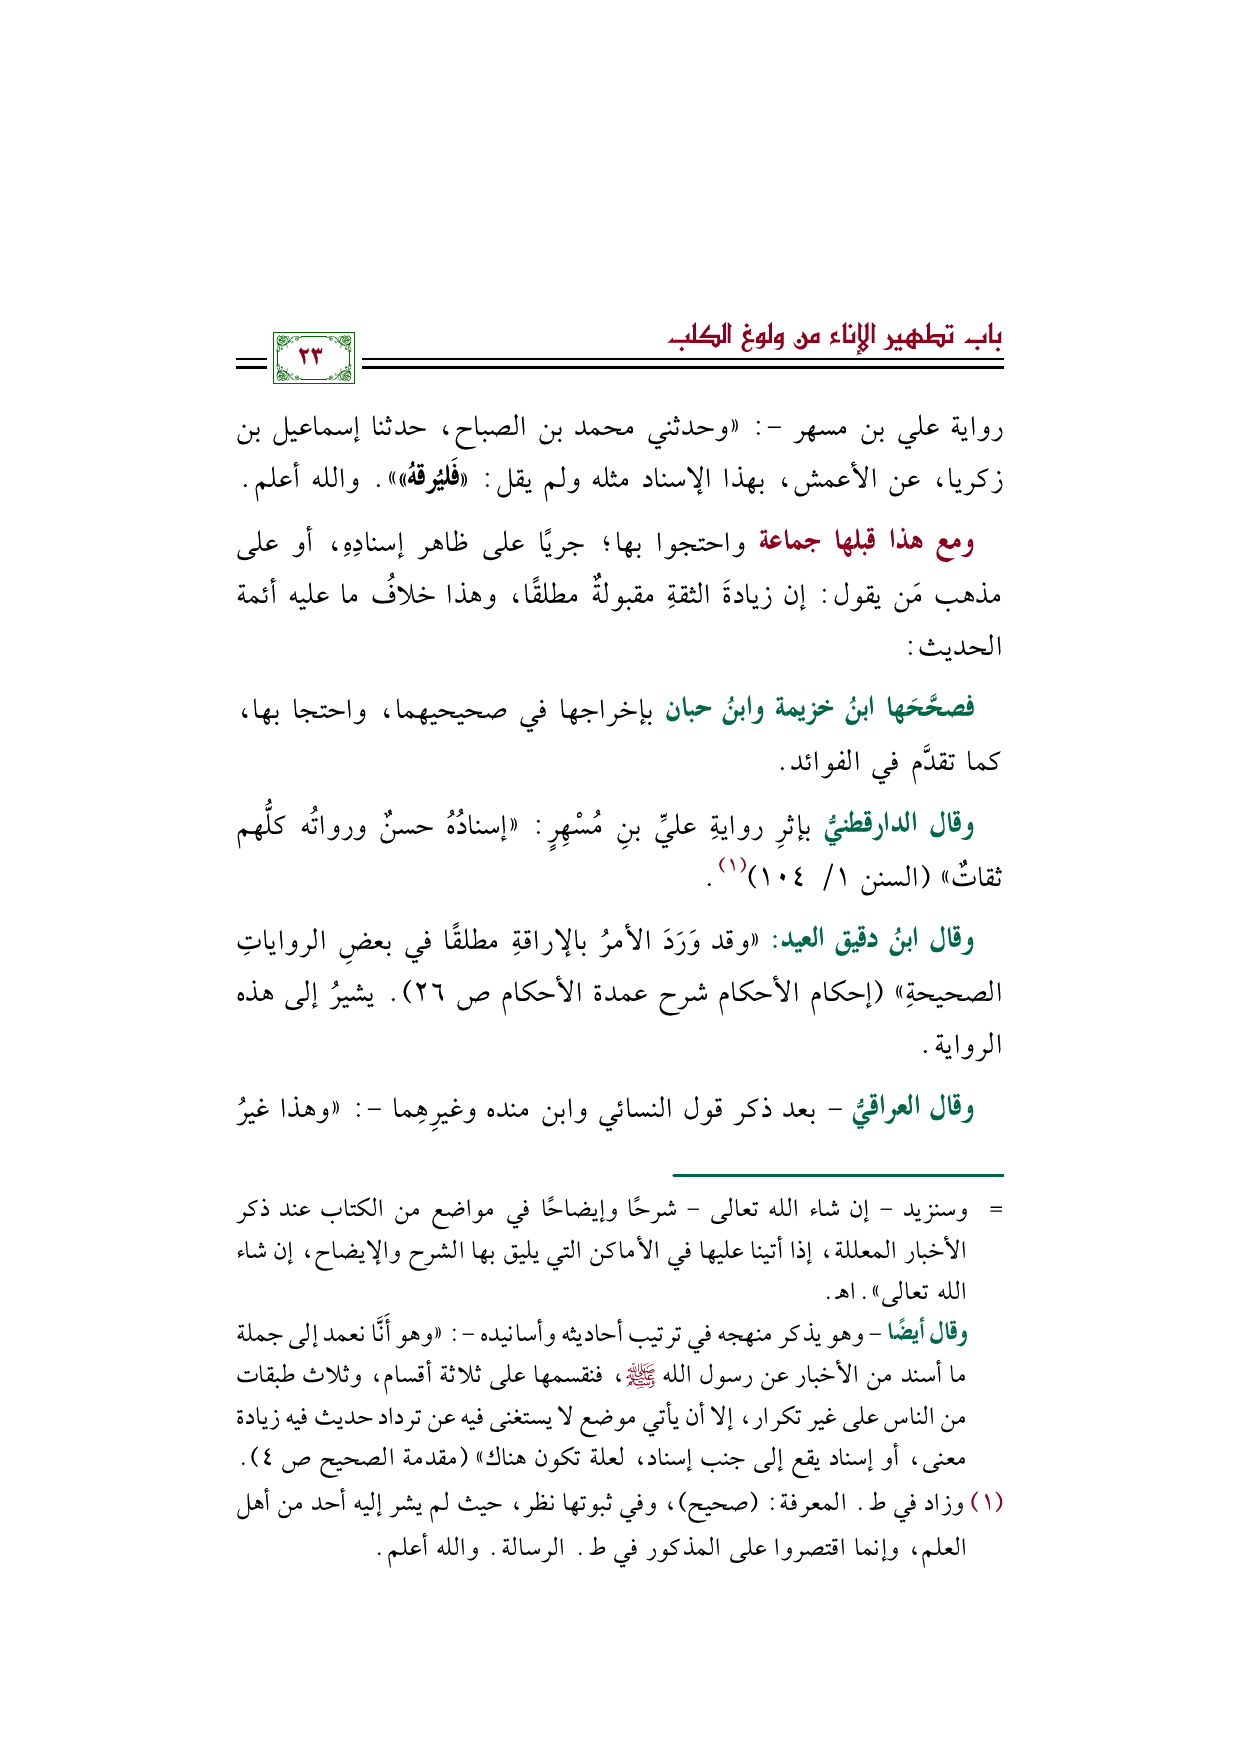 باب تطهير الإناء من ولوغ الكلب
٢٣
رواية علي بن مسهر –: «وحدثني محمد بن الصباح، حدثنا إسماعيل بن
زكريا، عن الأعمش، بهذا الإسناد مثله ولم يقل: «فَليُرقهُ»». والله أعلم.
ومع هذا قبلها جماعة واحتجوا بها؛ جريًا على ظاهر إسنادِهِ، أو على
مذهب مَن يقول: إن زيادةَ الثقةِ مقبولةٌ مطلقًا، وهذا خلافُ ما عليه أئمة
الحديث:
فصحَّحَها ابنُ خزيمة وابنُ حبان بإخراجها في صحيحيهما، واحتجا بها،
كما تقدَّم في الفوائد.
وقال الدارقطنيُّ بإثرِ روايةِ عليِّ بنِ مُسْهِرٍ: «إسنادُهُ حسنٌ ورواتُه كلُّهم
ثقاتٌ» (السنن ١/ ١٠٤)(١).
وقال ابنُ دقيق العيد: «وقد وَرَدَ الأمرُ بالإراقةِ مطلقًا في بعضِ الرواياتِ
الصحيحةِ» (إحكام الأحكام شرح عمدة الأحكام ص ٢٦). يشيرُ إلى هذه
الرواية.
وقال العراقيُّ – بعد ذكر قول النسائي وابن منده وغيرِهِما –: «وهذا غيرُ
= وسنزيد – إن شاء الله تعالى – شرحًا وإيضاحًا في مواضع من الكتاب عند ذكر
الأخبار المعللة، إذا أتينا عليها في الأماكن التي يليق بها الشرح والإيضاح، إن شاء
الله تعالى». اهـ.
وقال أيضًا – وهو يذكر منهجه في ترتيب أحاديثه وأسانيده –: «وهو أَنَّا نعمد إلى جملة
ما أسند من الأخبار عن رسول الله ﷺ، فنقسمها على ثلاثة أقسام، وثلاث طبقات
من الناس على غير تكرار، إلا أن يأتي موضع لا يستغنى فيه عن ترداد حديث فيه زيادة
معنى، أو إسناد يقع إلى جنب إسناد، لعلة تكون هناك» (مقدمة الصحيح ص ٤).
(١) وزاد في ط. المعرفة: (صحيح)، وفي ثبوتها نظر، حيث لم يشر إليه أحد من أهل
العلم، وإنما اقتصروا على المذكور في ط. الرسالة. والله أعلم.